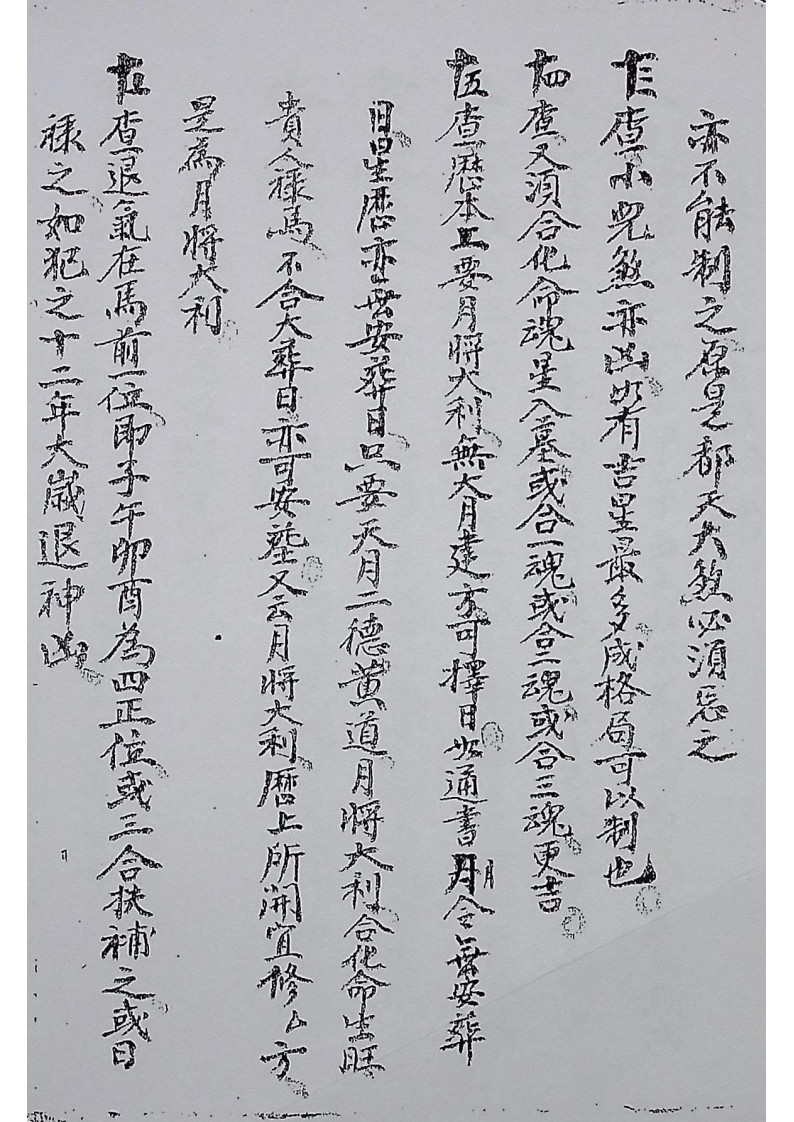 亦不能制之原是都天大煞必須忌之
十三查小児煞亦凶如有吉星最多成格局可以制也
十四查又須合化命魂星入墓或合一魂或合二魂或合三魂更吉
十五查暦本上要月將大利無大月建方可擇日如通書月令無安葬
日曰生暦亦無安葬日只要天月二德黄道月將大利合化命生旺
貴人禄馬不合大葬日亦可安塟又云月將大利暦上所開宜修厶方
是為月將大利
查退氣在馬前一位即子午卯酉為四正位或三合扶補之或日
禄之如犯之十二年大歲退神凶